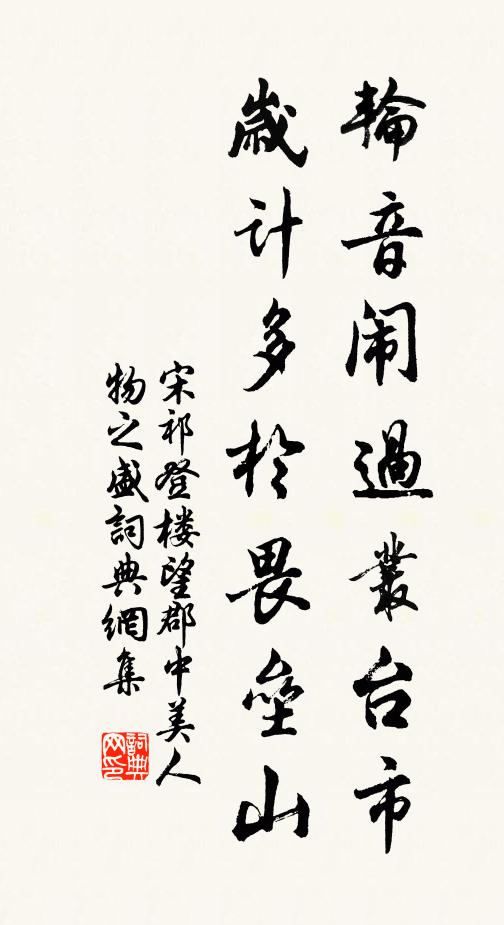 輪音闹過叢台市
歲计多於畏垒山
宋祁登楼望郡中美人
物之盛詞典網集
詞典网印